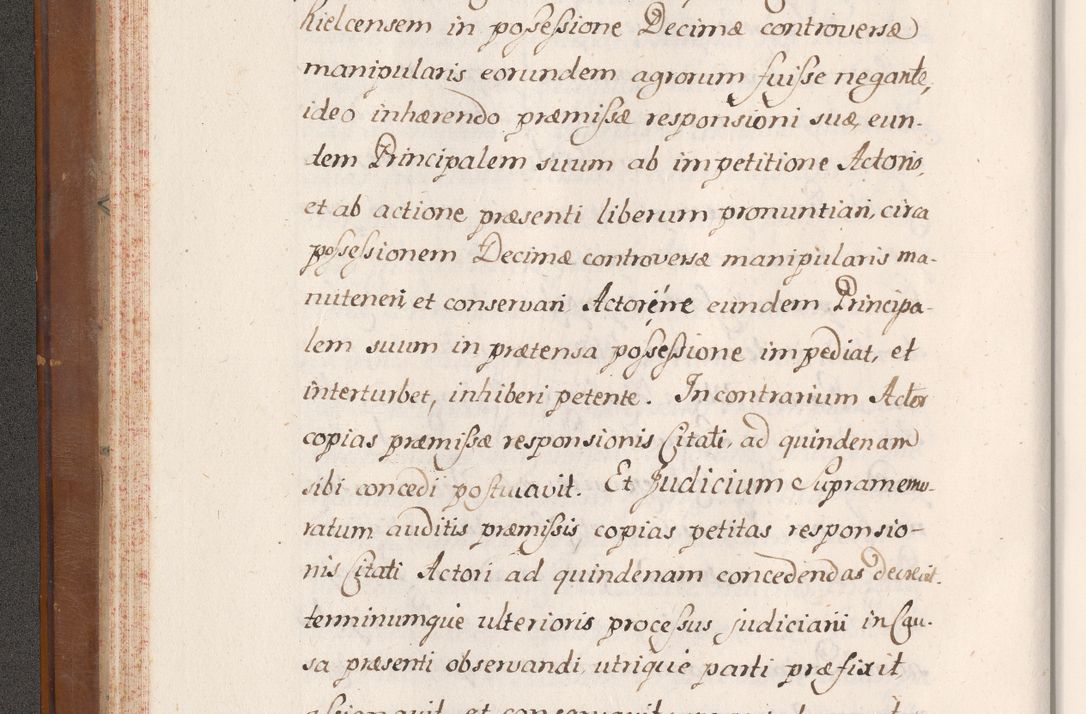 kielcensem in possessione Decimæ controversæ
manipularis eorundem agrorum fuisse negante,
ideo inhærendo præmissæ responsioni suæ, eun-
dem Principalem suum ab impetitione Actoris,
et ab actione præsenti liberum pronuntiari, circa
possessionem Decimæ controversæ manipularis ma-
nuteneri et conservari Actoréne eundem Principa-
lem suum in prætensa possessione impediat, et
interturbet, inhiberi petente. In contrarium Actor
copias præmissæ responsionis Citati, ad quindenam
sibi concedi postulavit. Et Judicium Supramemo-
ratum auditis præmissis copias petitas responsio-
nis Citati Actori ad quindenam concedendas decrevit.
terminumque ulterioris processus judiciarii in Cau-
sa præsenti observandi utrique parti præfixit
assignavit et